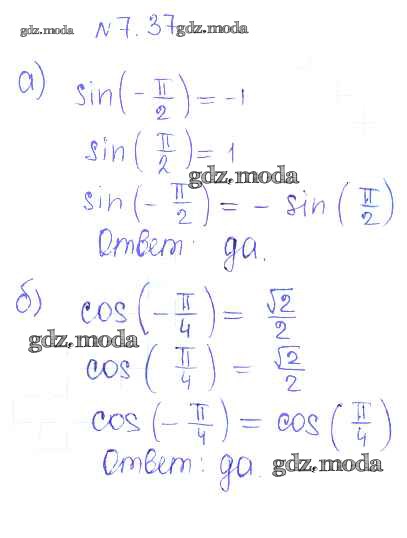 gdz.moda N 7.37 gdz.moda
а) sin(-π/2) = -1
sin(π/2) = 1
gdz.moda
sin(-π/2) = - sin(π/2)
Ответ: да.
б) cos(-π/4) = √2/2
gdz.moda
cos(π/4) = √2/2
cos(-π/4) = cos(π/4)
Ответ: да. gdz.moda